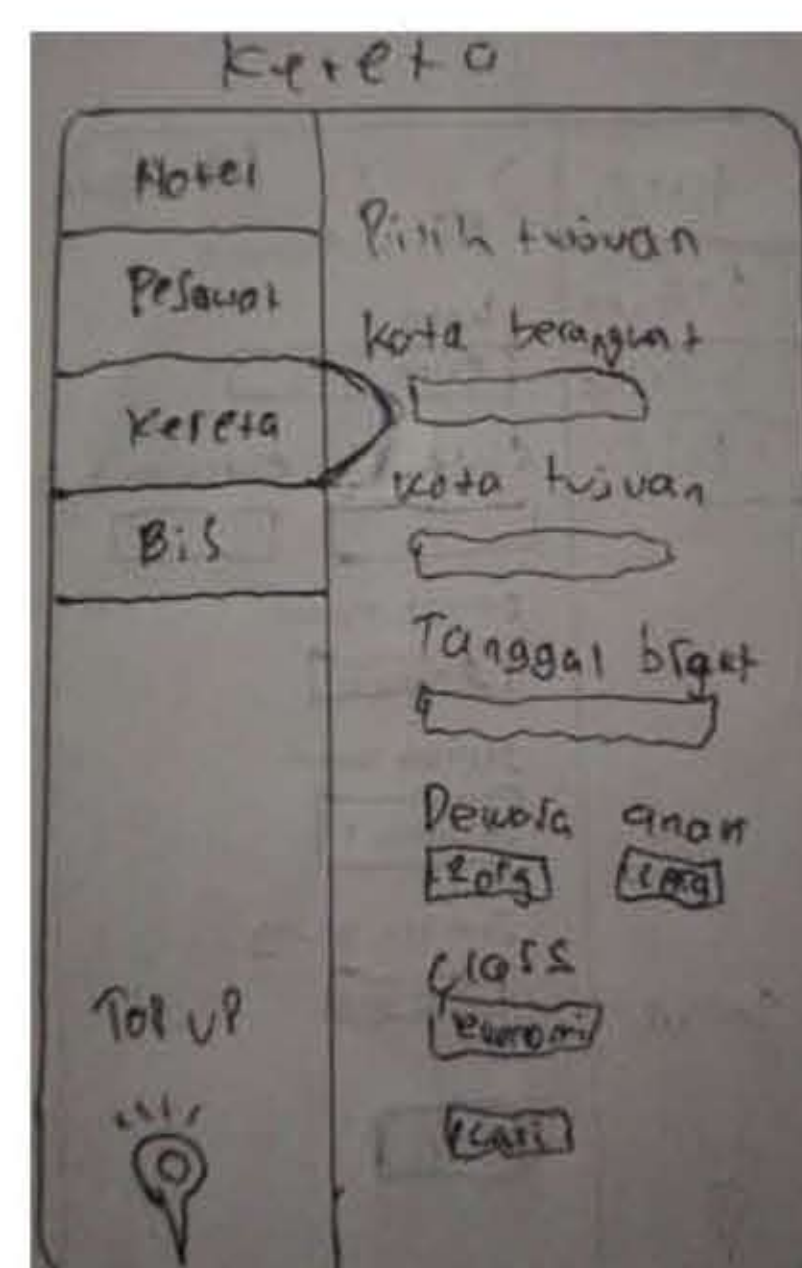 Kereta
Hotel
Pesawat
Kereta
Bis
TOP UP
Pilih tujuan
Kota berangkat
Kota tujuan
Tanggal brgkt
Dewasa anak
Class
ekonomi
cari